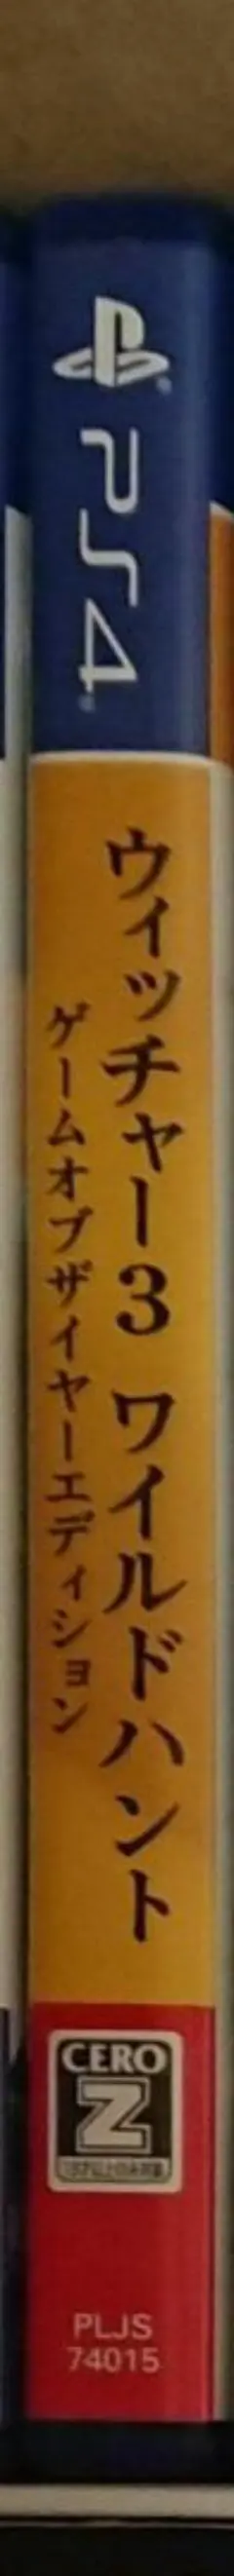 PS4
ウィッチャー3 ワイルドハント
ゲームオブザイヤーエディション
CERO
Z
PLJS
74015